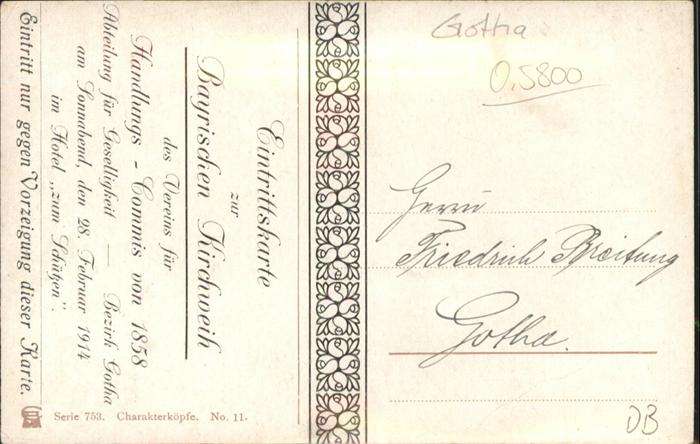 Eintrittskarte
zur
Bayrischen Kirchweih
des Vereins für
Handlungs - Commis von 1858
Abteilung für Geselligkeit — Bezirk Gotha
am Sonnabend, den 28. Februar 1914
im Hotel „zum Schützen".
Eintritt nur gegen Vorzeigung dieser Karte.
Serie 753. Charakterköpfe. No. 11.
Gotha
0,5800
Herrn
Friedrich Breitung
Gotha.
DB